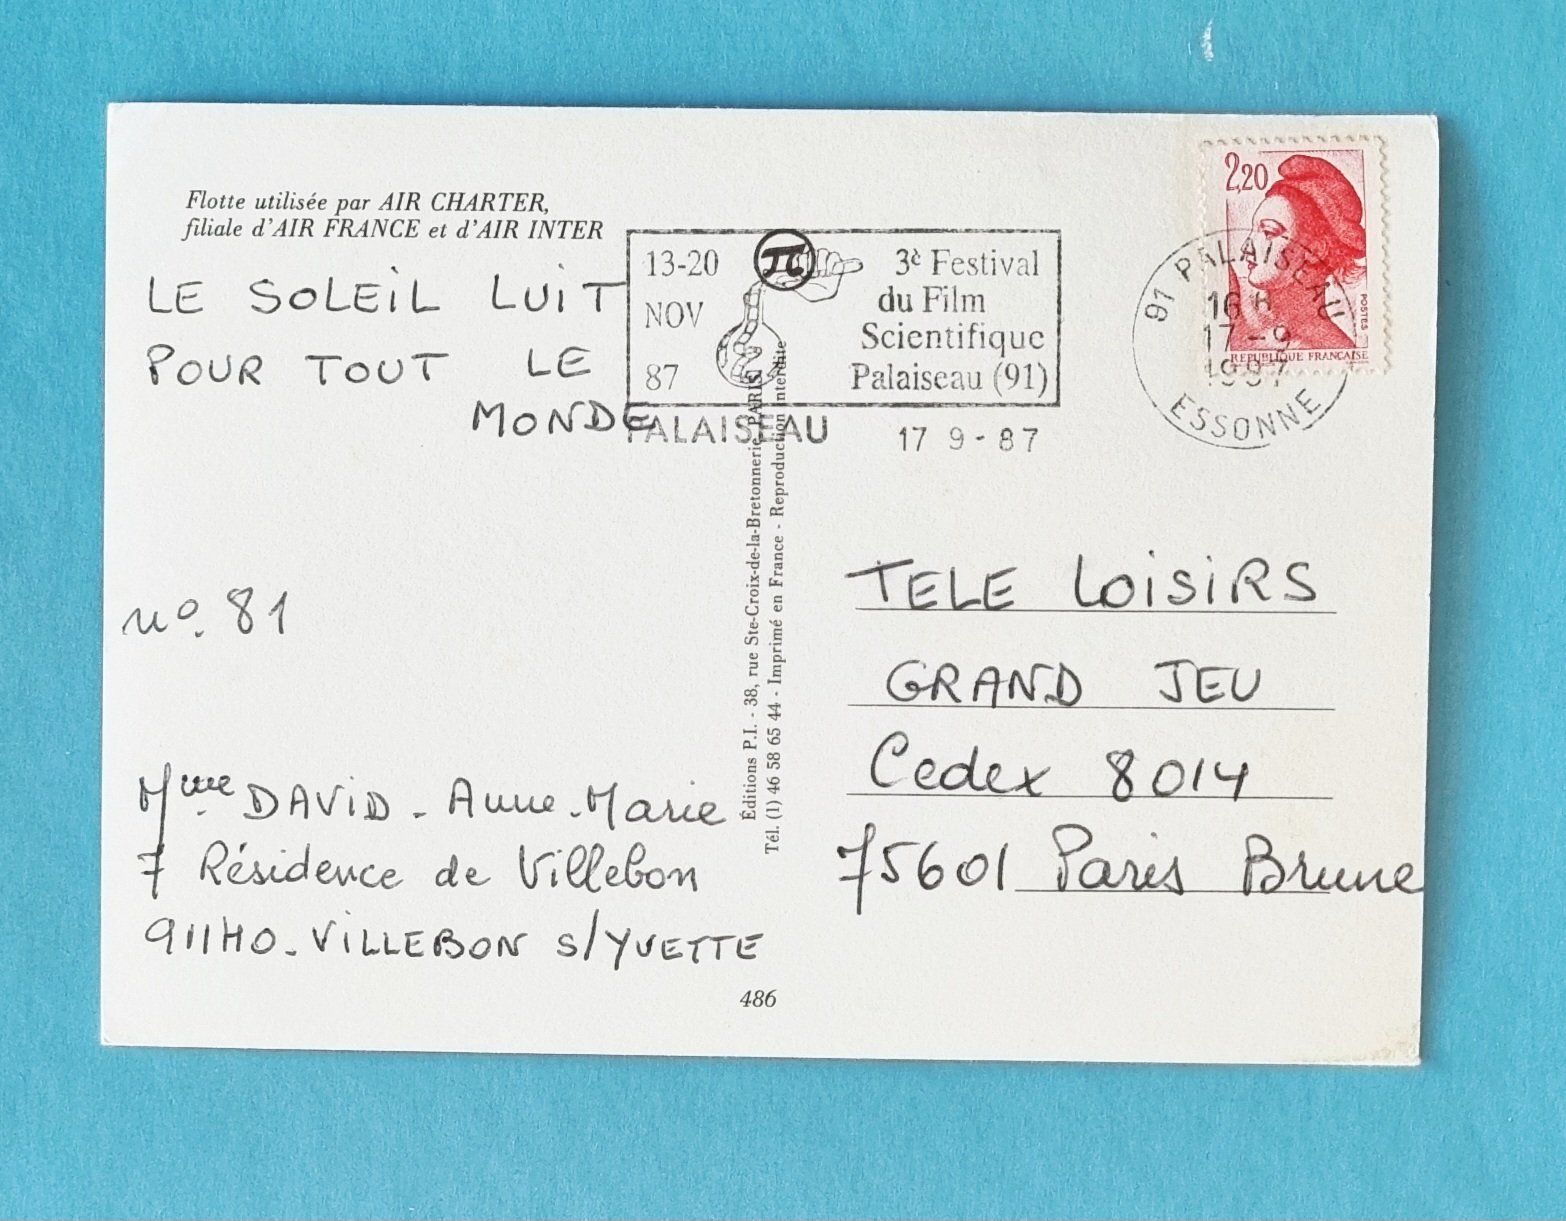 Flotte utilisée par AIR CHARTER,
filiale d'AIR FRANCE et d'AIR INTER
LE SOLEIL LUIT
POUR TOUT LE
MONDE
no. 81
Mme DAVID - Anne-Marie
7 Résidence de Villebon
91140 - VILLEBON S/YVETTE
486
Éditions P.I. - 38, rue Ste-Croix-de-la-Bretonnerie PARIS
Tél. (1) 46 58 65 44 - Imprimé en France - Reproduction interdite
13-20
NOV
87
π
3è Festival
du Film
Scientifique
Palaiseau (91)
PALAISEAU
17 9 - 87
2,20
POSTES
REPUBLIQUE FRANÇAISE
91 PALAISEAU
16 H
17 - 9
1987
ESSONNE
TELE LOISIRS
GRAND JEU
Cedex 8014
75601 Paris Brune